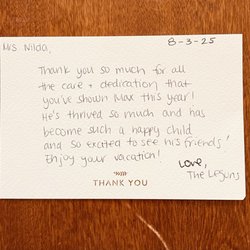 Mrs Nilda,
8-3-25
Thank you so much for all
the care + dedication that
you've shown Max this year!
He's thrived so much and has
become such a happy child
and so excited to see his friends!
Enjoy your vacation!
Love,
The
THANK YOU